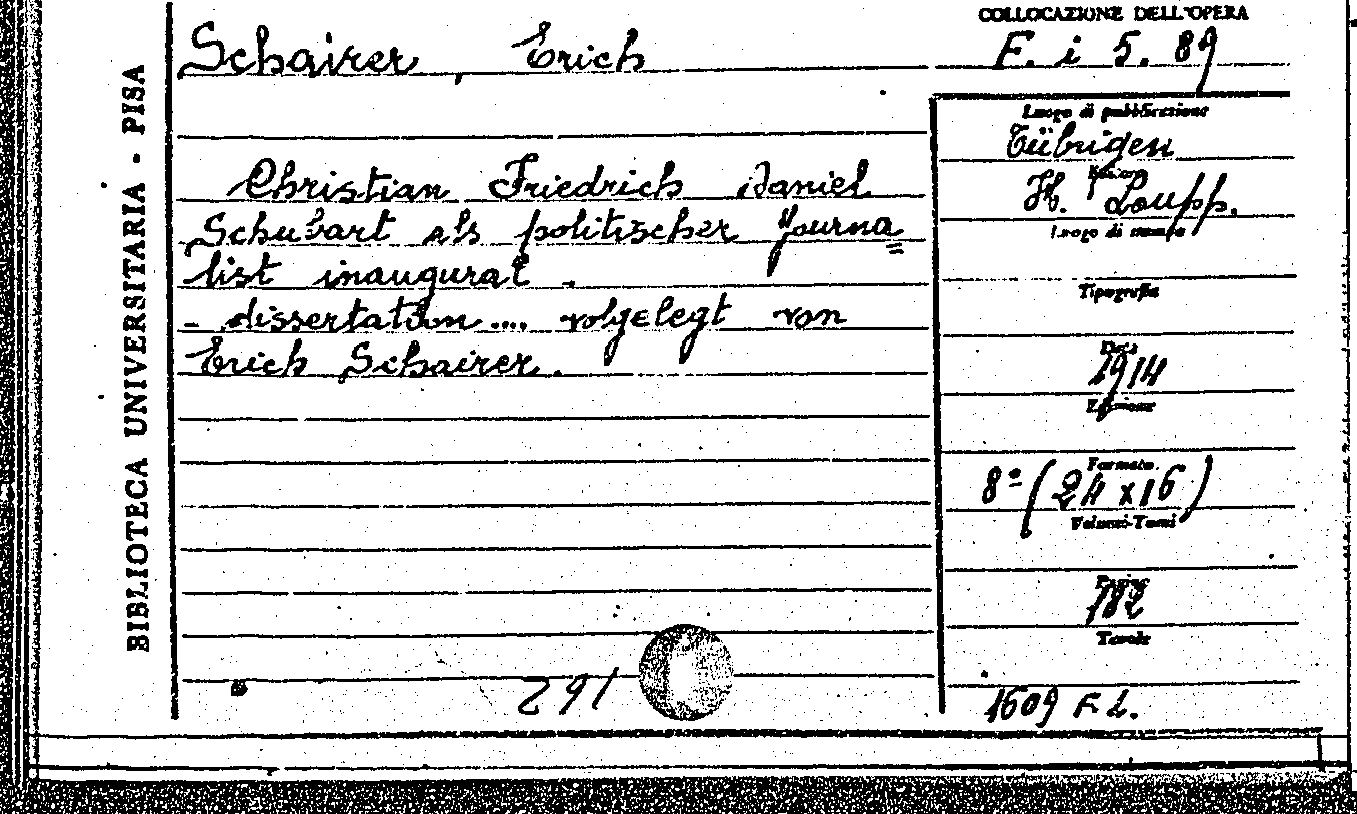 COLLOCAZIONE DELL'OPERA
Schairer, Erich
F. i 5. 89
BIBLIOTECA UNIVERSITARIA - PISA
Christian Friedrich Daniel
Schubart als politischer Journa=
list inaugurat
- dissertation .... volgelegt von
Erich Schairer.
Luogo di pubblicazione
Tübrigen
Editore
H. Laupp.
Luogo di stampa
Tipografia
Data
1914
Edizione
Formato
8º (24 x 16)
Volumi-Tomi
Pagine
182
Tavole
291
1609 F L.